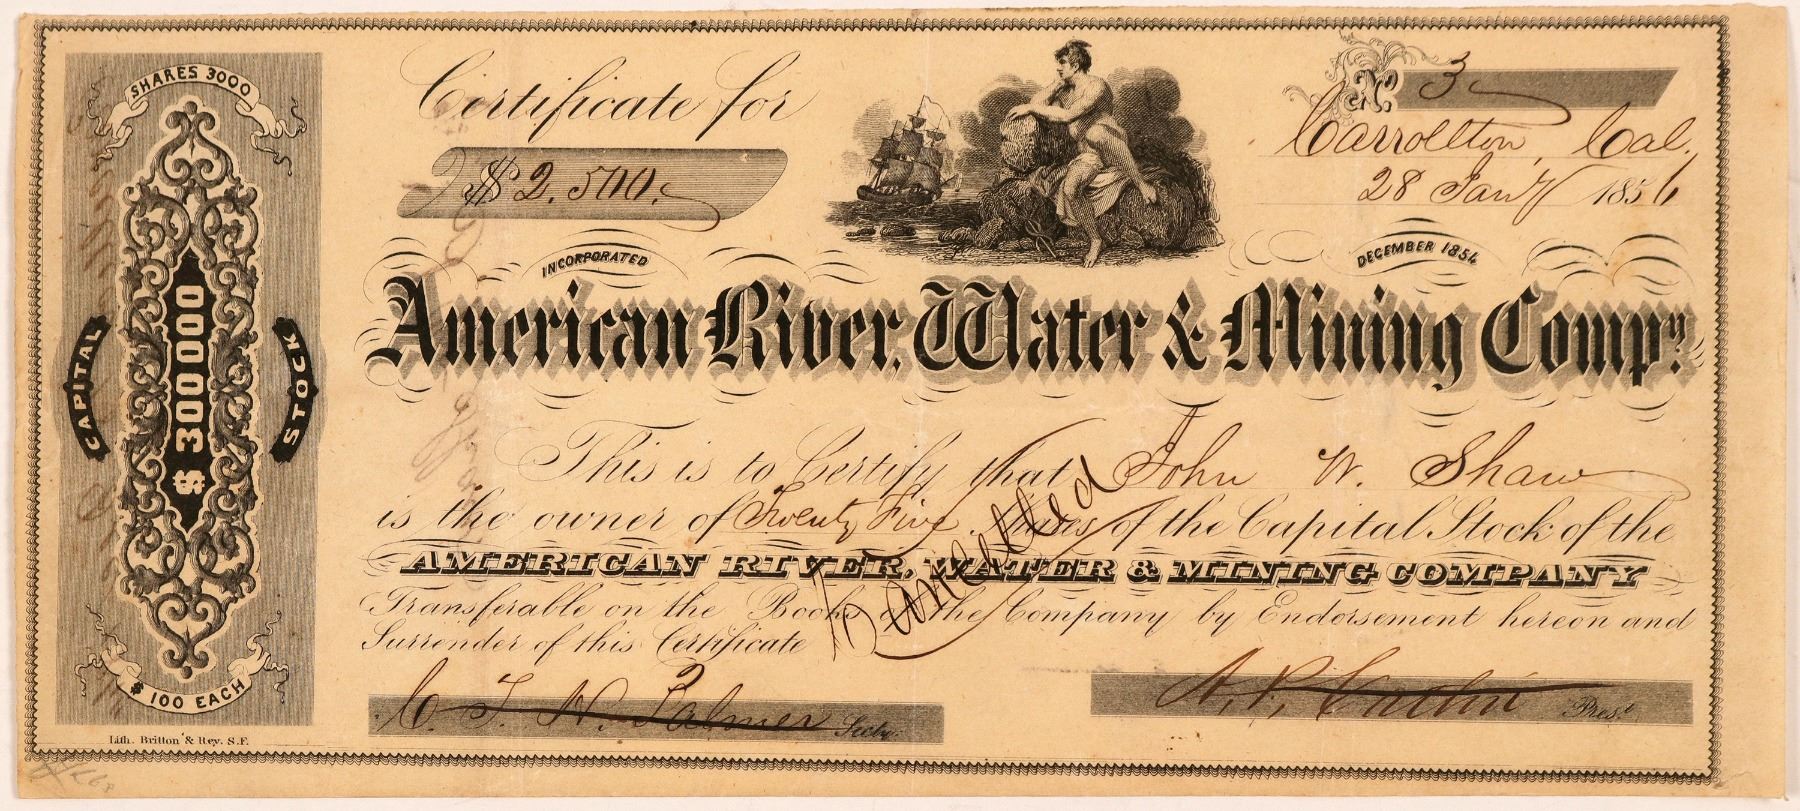 SHARES 3000
CAPITAL
$ 300000
STOCK
$ 100 EACH
Lith. Britton & Rey. S.F.
Certificate for
$2.500.
No. 3
Carrollton, Cal.
28 Jany 1856
INCORPORATED
DECEMBER 1854
American River, Water & Mining Compy.
This is to Certify that John W. Shaw
is the owner of Twenty Five Shares of the Capital Stock of the
AMERICAN RIVER, WATER & MINING COMPANY
Transferable on the Books of the Company by Endorsement hereon and
Surrender of this Certificate
Cancelled
C. T. H. Palmer Secty.
A. P. Catlin Prest.